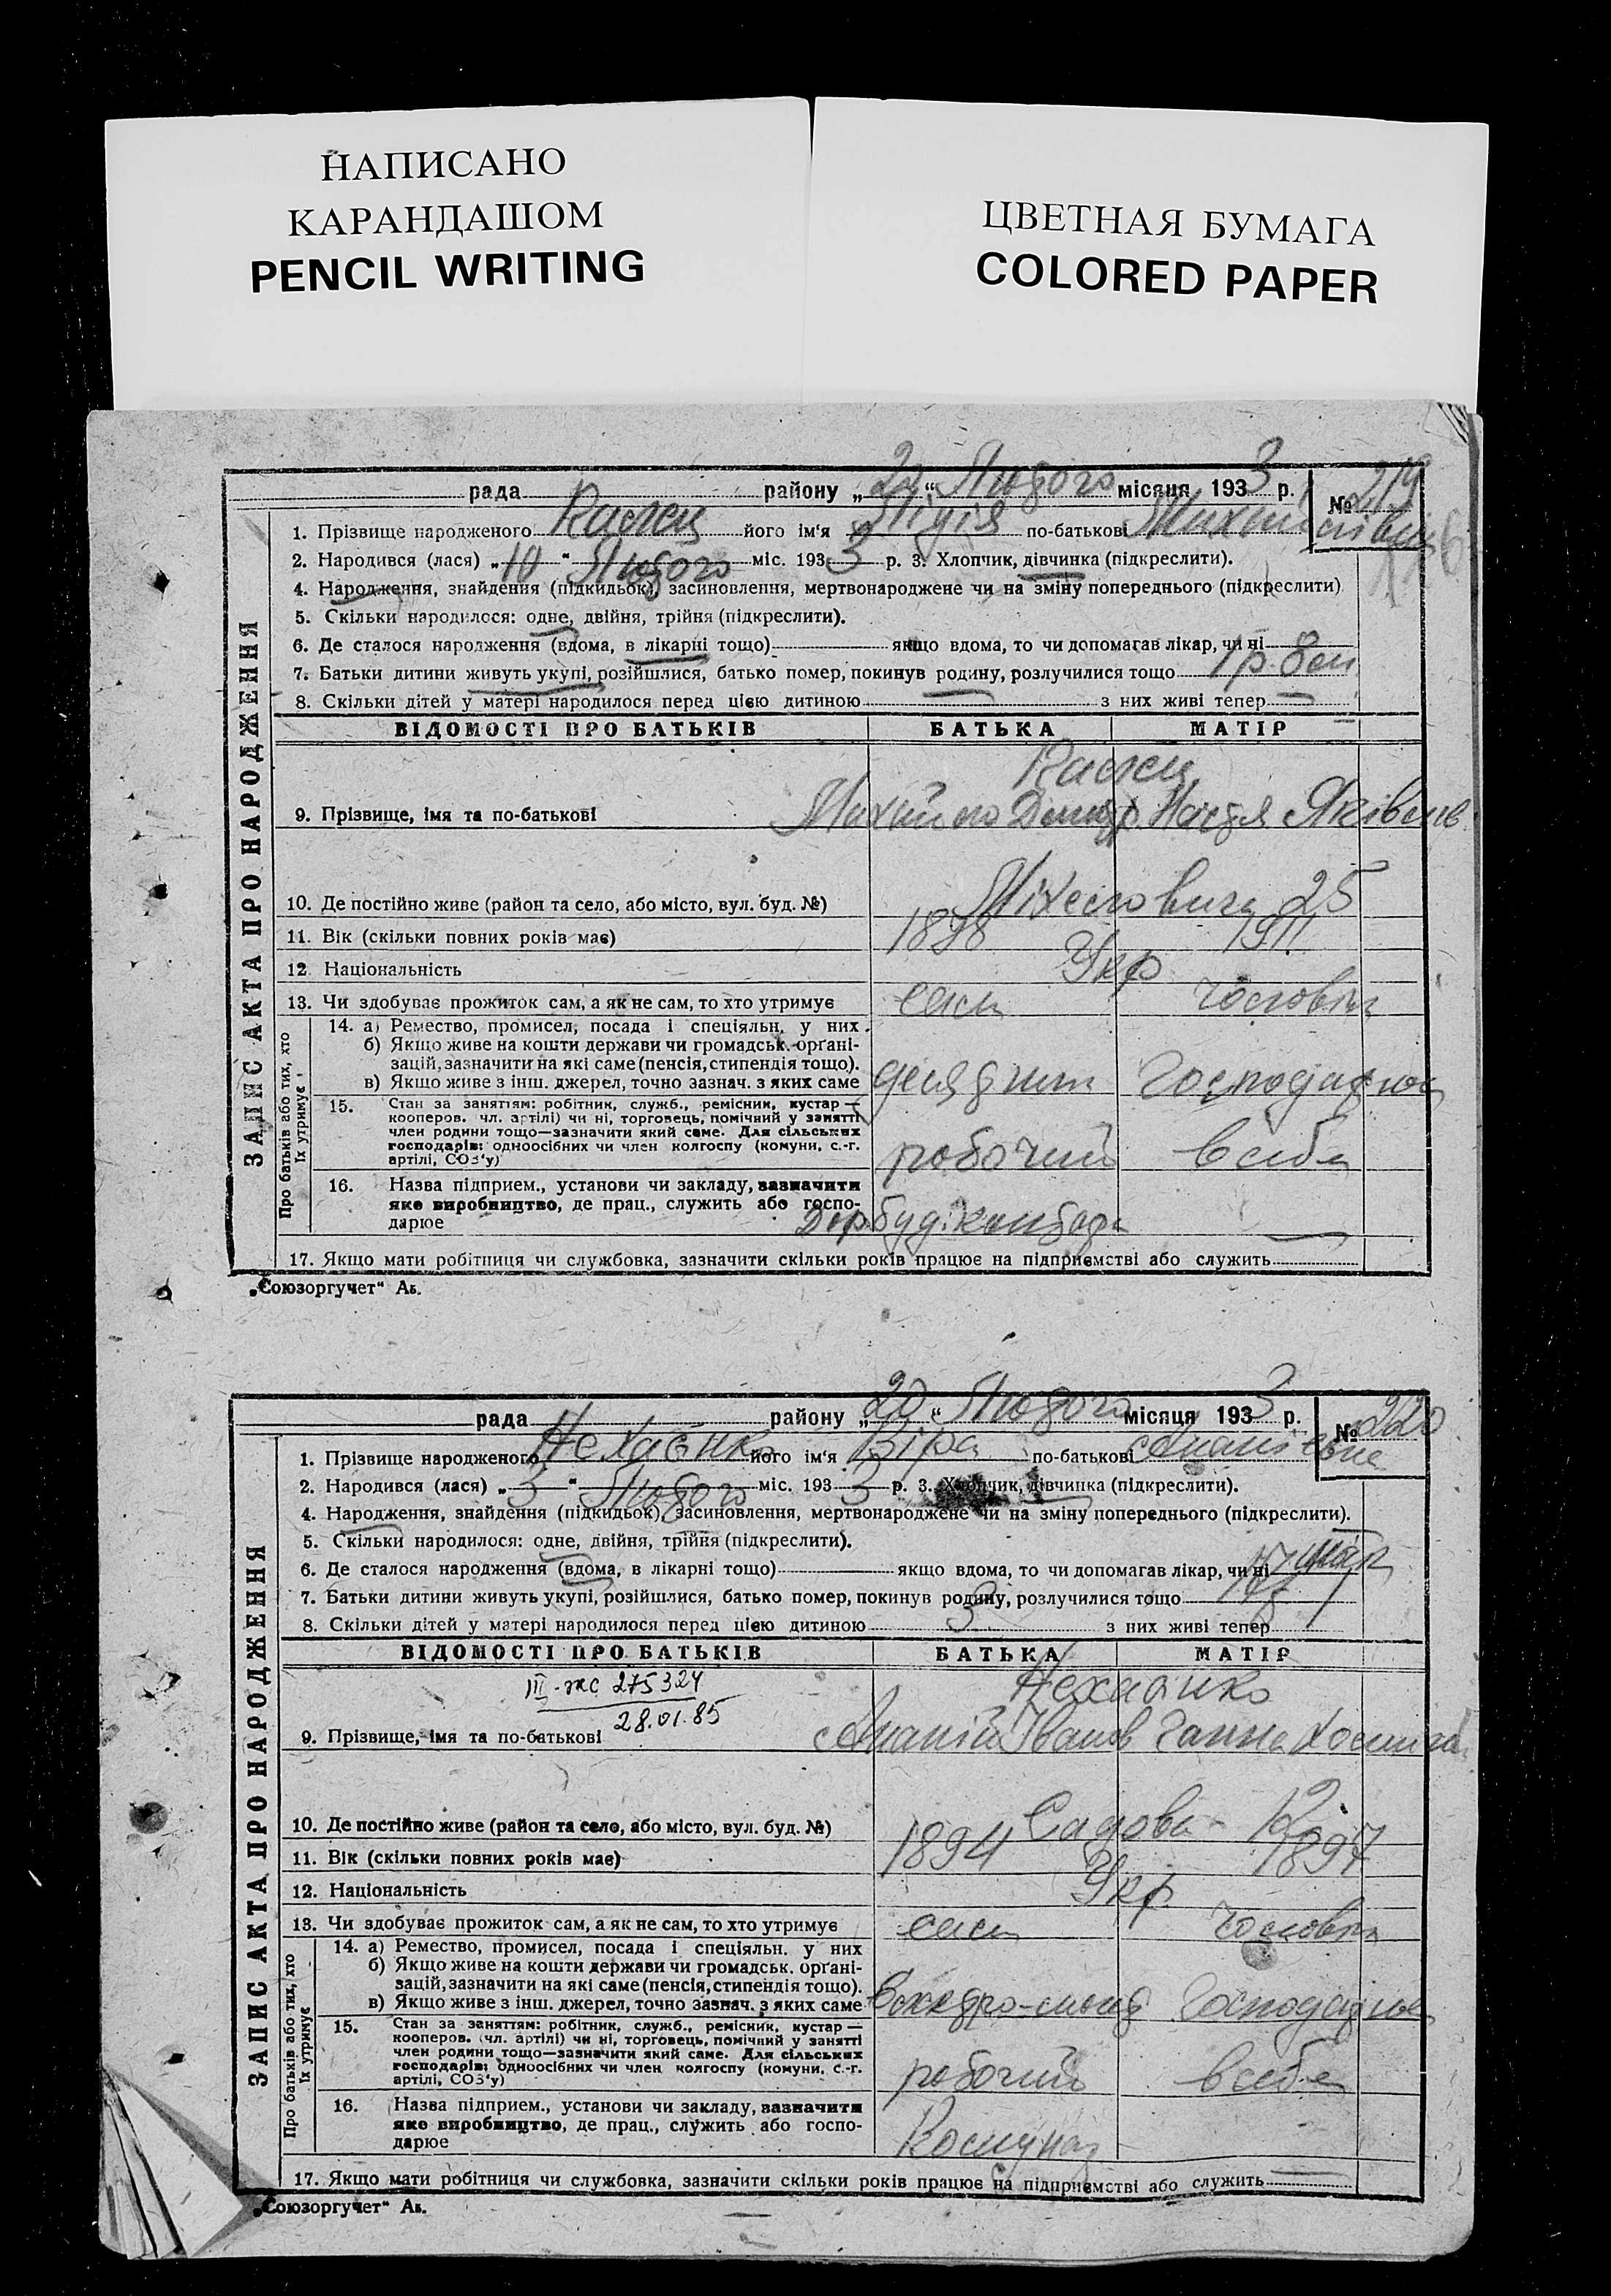 НАПИСАНО
КАРАНДАШОМ
PENCIL WRITING
ЦВЕТНАЯ БУМАГА
COLORED PAPER
ЗАПИС АКТА ПРО НАРОДЖЕННЯ
рада району „ “ Лютого місяця 1933 р. № 219
1. Прізвище народженого його ім'я Лідія по-батькові
2. Народився (лася) „10“ Лютого міс. 1933 р. 3. Хлопчик, дівчинка (підкреслити).
4. Народження, знайдення (підкидьок), засиновлення, мертвонароджене чи на зміну попереднього (підкреслити)
5. Скільки народилося: одне, двійня, трійня (підкреслити).
6. Де сталося народження (вдома, в лікарні тощо) якщо вдома, то чи допомагав лікар, чи ні
7. Батьки дитини живуть укупі, розійшлися, батько помер, покинув родину, розлучилися тощо
8. Скільки дітей у матері народилося перед цією дитиною — з них живі тепер —
ВІДОМОСТІ ПРО БАТЬКІВ БАТЬКА МАТІР
9. Прізвище, імя та по-батькові Михайло Настя
10. Де постійно живе (район та село, або місто, вул. буд. №) 25
11. Вік (скільки повних років має) 1898 1911
12. Національність Укр
13. Чи здобуває прожиток сам, а як не сам, то хто утримує сам чоловік
Про батьків або тих, хто
їх утримує
14. а) Ремество, промисел, посада і спеціяльн. у них
б) Якщо живе на кошти держави чи громадськ. орґані-
зацій, зазначити на які саме (пенсія, стипендія тощо).
в) Якщо живе з інш. джерел, точно зазнач. з яких саме десятник
15. Стан за заняттям: робітник, служб., ремісник, кустар —
кооперов. чл. артілі) чи ні, торговець, помічний у занятті
член родини тощо—зазначити який саме. Для сільських
господарів: одноосібних чи член колгоспу (комуни, с.-г.
артілі, СОЗ'у) робочий
16. Назва підприєм., установи чи закладу, зазначити
яке виробництво, де прац., служить або госпо-
дарює —
17. Якщо мати робітниця чи службовка, зазначити скільки років працює на підприємстві або служить
„Союзоргучет“ Аб.
ЗАПИС АКТА ПРО НАРОДЖЕННЯ
рада району „20“ Лютого місяця 1933 р. № 220
1. Прізвище народженого Нехаєнко його ім'я Віра по-батькові
2. Народився (лася) „3“ Лютого міс. 1933 р. 3. Хлопчик, дівчинка (підкреслити).
4. Народження, знайдення (підкидьок), засиновлення, мертвонароджене чи на зміну попереднього (підкреслити).
5. Скільки народилося: одне, двійня, трійня (підкреслити).
6. Де сталося народження (вдома, в лікарні тощо) якщо вдома, то чи допомагав лікар, чи ні
7. Батьки дитини живуть укупі, розійшлися, батько помер, покинув родину, розлучилися тощо
8. Скільки дітей у матері народилося перед цією дитиною 3 з них живі тепер
ВІДОМОСТІ ПРО БАТЬКІВ БАТЬКА МАТІР
III-жс 275324
28.01.85
Нехаєнко
9. Прізвище, імя та по-батькові Ананій Іванов Ганна
10. Де постійно живе (район та село, або місто, вул. буд. №) Садова
11. Вік (скільки повних років має) 1894 1897
12. Національність Укр.
13. Чи здобуває прожиток сам, а як не сам, то хто утримує сам чоловік
Про батьків або тих, хто
їх утримує
14. а) Ремество, промисел, посада і спеціяльн. у них
б) Якщо живе на кошти держави чи громадськ. орґані-
зацій, зазначити на які саме (пенсія, стипендія тощо).
в) Якщо живе з інш. джерел, точно зазнач. з яких саме
15. Стан за заняттям: робітник, служб., ремісник, кустар —
кооперов. чл. артілі) чи ні, торговець, помічний у занятті
член родини тощо—зазначити який саме. Для сільських
господарів: одноосібних чи член колгоспу (комуни, с.-г.
артілі, СОЗ'у) робочий
16. Назва підприєм., установи чи закладу, зазначити
яке виробництво, де прац., служить або госпо-
дарює Комунгоз
17. Якщо мати робітниця чи службовка, зазначити скільки років працює на підприємстві або служить
„Союзоргучет“ Аб.